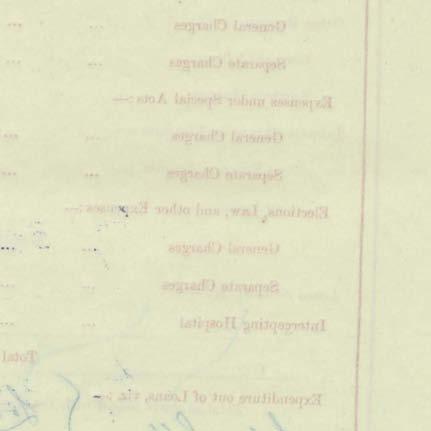 General Charges ... ...
Separate Charges ... ...
Expenses under Special Acts :—
General Charges ... ...
Separate Charges ... ...
Elections, Law, and other Expenses :—
General Charges ...
Separate Charges ... ...
Intercepting Hospital ... ...
Total
Expenditure out of Loans, viz :—